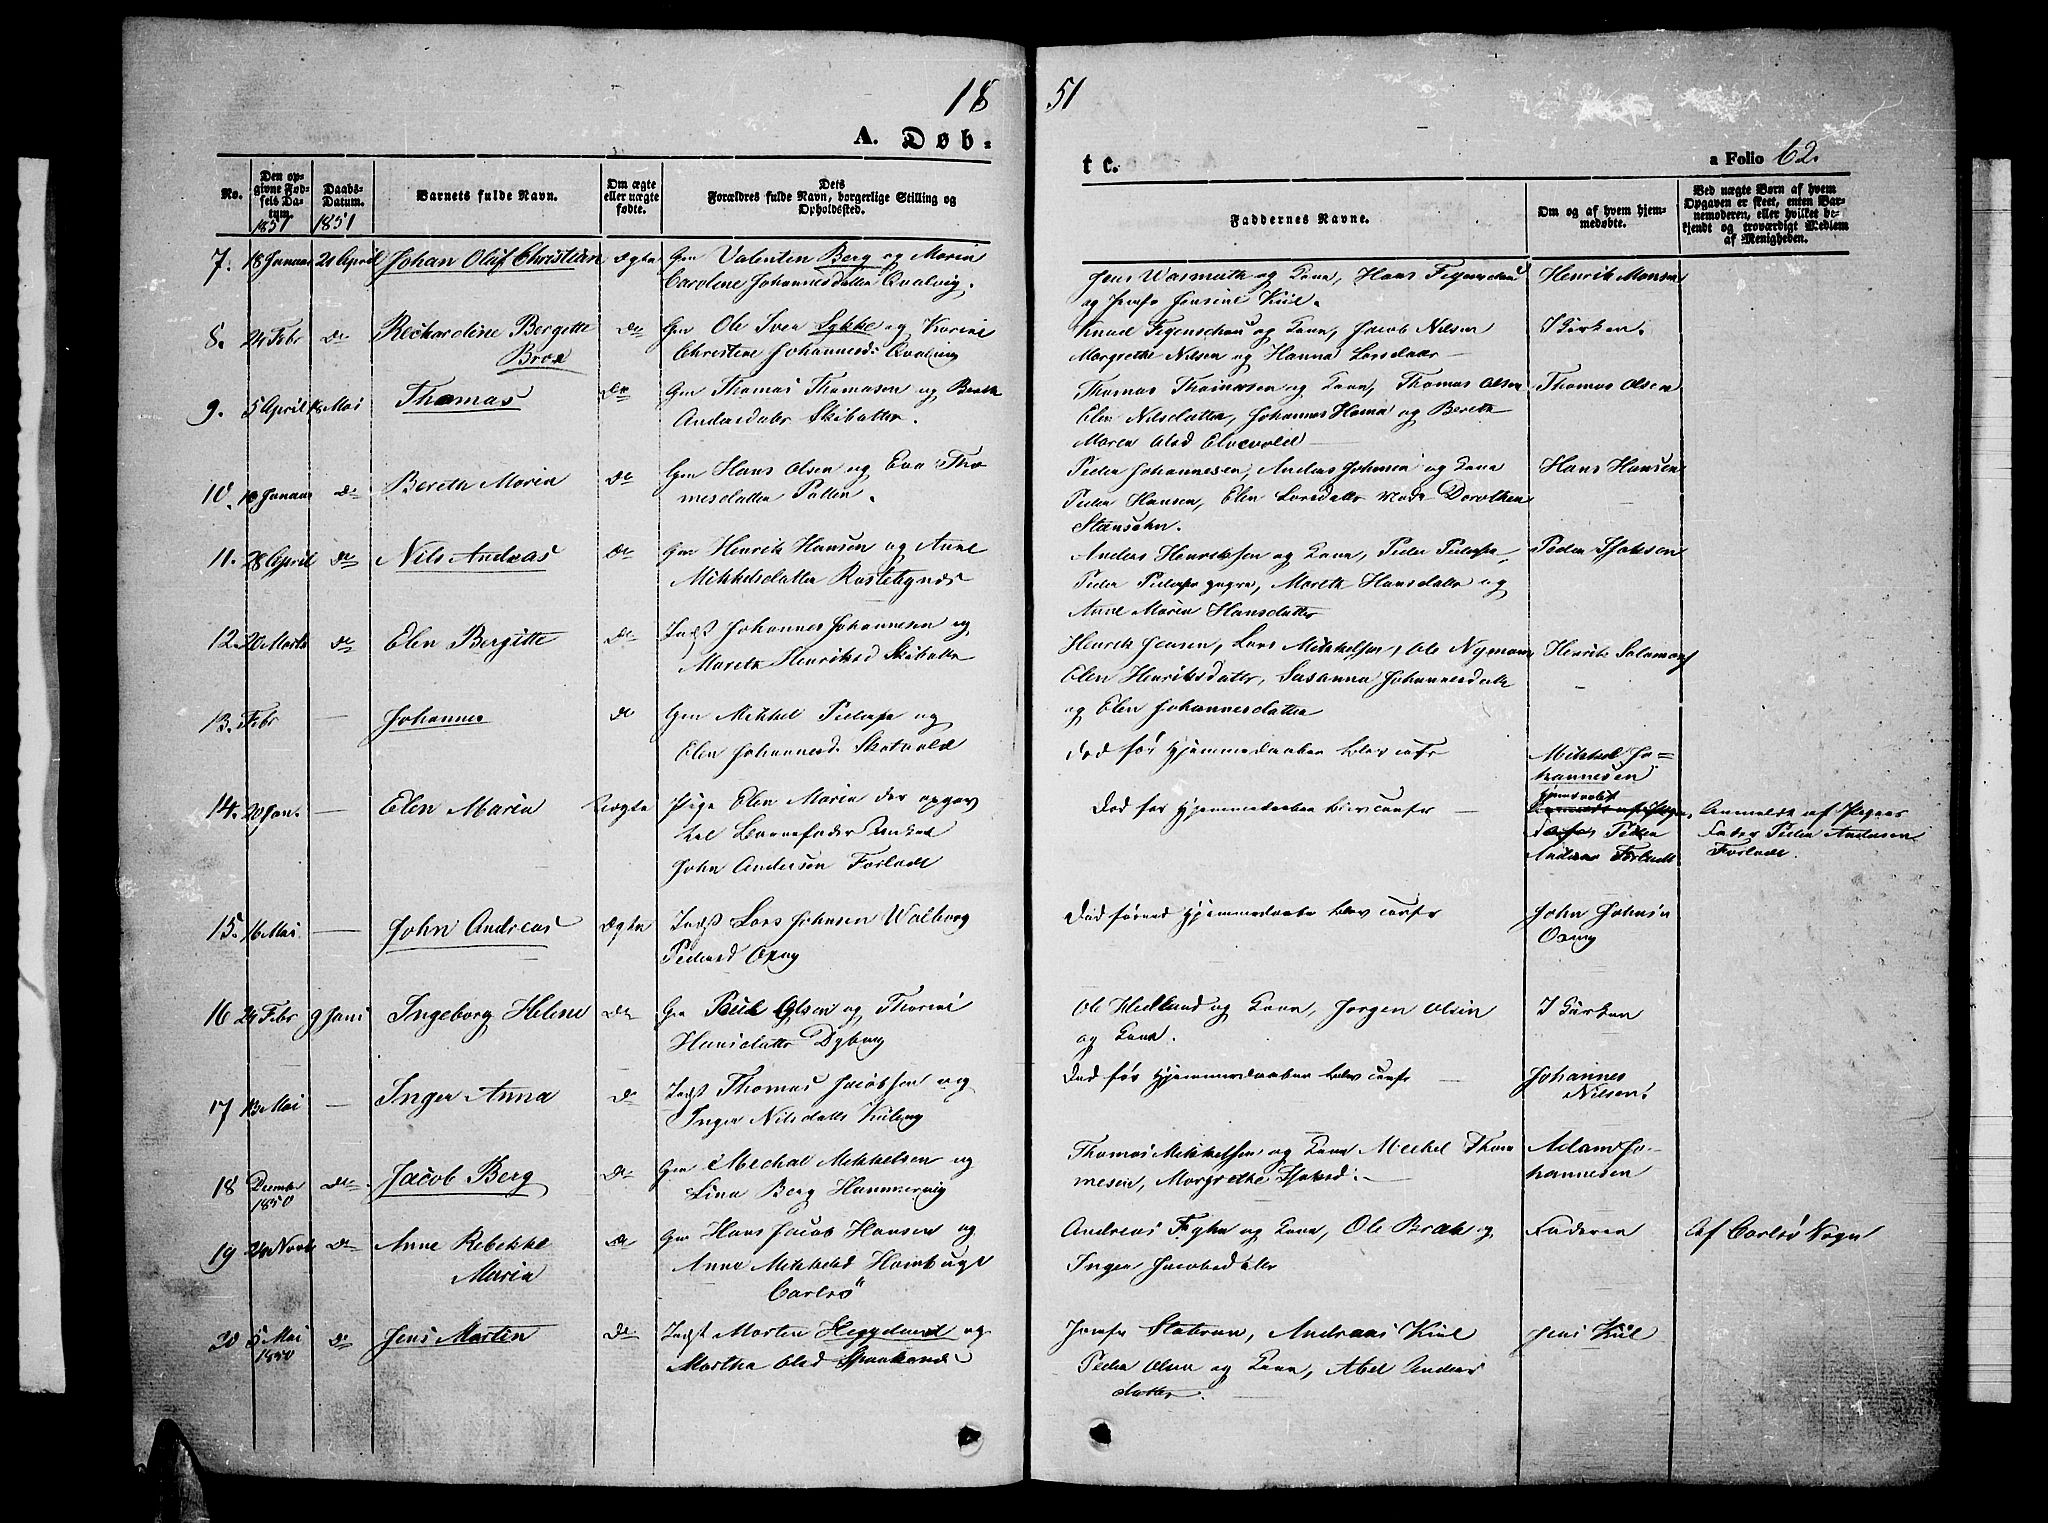 18 51
A. Døb- t c.
a Folio 62.
No.
Den opgivne Fødsels Datum. 1851
Daabs-Datum. 1851
Barnets fulde Navn.
Om ægte eller uægte fødte.
Dets Forældres fulde Navn, borgerlige Stilling og Opholdsted.
Faddernes Navne.
Om og af hvem hjemmedøbte.
Ved uægte Børn af hvem Opgaven er skeet, enten Barnemoderen, eller hvilket bekjendt og troværdigt Medlem af Menigheden.
7. 18 Januar 21 April Johan Oluf Christian Ægte Gm Valentin Berg og Maria
Caroline Johannesdatter Qvalvig.
og Kone, Hans Figenschou Henrik Monsen
og Jomfr Jensine Kiil.
8. 24 Febr do Richardine Bergitte do Gm Ole Iver Lykke og Karine
Brox Christine Johannesd: Qvalvig
Knud Figenschou og Kone, Jacob Nilsen I Kirken.
Margrethe Nilsen og Hanna Larsdatter
9. 5 April 18 Mai Thomas do Gm Thomas Thomasen og Bereth
Andersdatter Skibotten.
Thomas Thomasen og Kone, Thomas Olsen Thomas Olsen
Elen Nilsdatter, Johannes Hama og Bereth
Maren Olsd Elvevold
10. Januar do Bereth Maria do Gm Hans Olsen og Eva Thomesdatter Pollen.
Peder Johannesen, Anders Johnsen og Kone Hans Hansen
Peder Hansen, Elen Larsdatter Dorothea
11. 28 April do Nils Andreas do Gm Henrik Hansen og Anne
Mikkelsdatter Rastebynes
Anders Henriksen og Kone, Peder Peders. Peder Isaksen
Peder Peders. yngre, Mareth Hansdatter og
Anne Maria Hansdatter
12. 20 Marts do Elen Bergitte do Indst Johannes Johannesen og
Mareth Henriksd Skibotten
Henrik Jensen, Lars Mikkelsen, Ole Nyman Henrik Salamons.
Elen Henriksdatter, Susanna Johannesdatter
og Elen Johannesdatter
13. Febr — Johannes do Gm Mikkel Peders. og
Elen Johannesd Skotvold
Død før Hjemmedaaben blev confr Mikkel Johannesen
14. 20 Jan. — Elen Maria Uægte Pige Elen Maria der opgav
til Barnefader Enkem
John Andersen Forladt
Død før Hjemmedaaben blev confr — Anmeldt af Pigens
Fader Peder Andersen
Forladt.
15. 16 Mai — John Andreas Ægte Indst Lars Johnsen Walborg
Pedersd Oxvig
Død førend Hjemmedaaben blev confr John Johnsen
Oxvig
16 24 Febr 9 Juni Ingeborg Helene do Gm Paul Olsen og Thorine
Hansdatter Dybvig
Ole Hedlund og Kone, Jørgen Olsen I Kirken
og Kone.
17 13 Mai — Inger Anna do Indst Thomas Jacobsen og
Inger Nilsdatter Kilvig
Død før Hjemmedaaben blev confr — Johannes
Nilsen.
18 Decembr 1850 do Jacob Berg do Gm Mechal Mikkelsen og
Lina Berg Hammervig
Thomas Mikkelsen og Kone Mechel Thomesen, Margrethe Isaksd: — Adam Johannesen
19 24 Novb do Anne Rebekke do Gm Hans Jacob Hansen og
Maria Anne Mikkelsd
Carlsø
Andreas og Kone, Ole Bræk og Faderen Af Carlsø Sogn
Inger Jacobsdatter
20 5 Mai 1850 do Jens Morten do Indst Morten Heggelund og
Martha Olsd
Jomfr Andreas Kiil Jens Kiil
Peder Olsen og Kone, Abel Andersdatter.